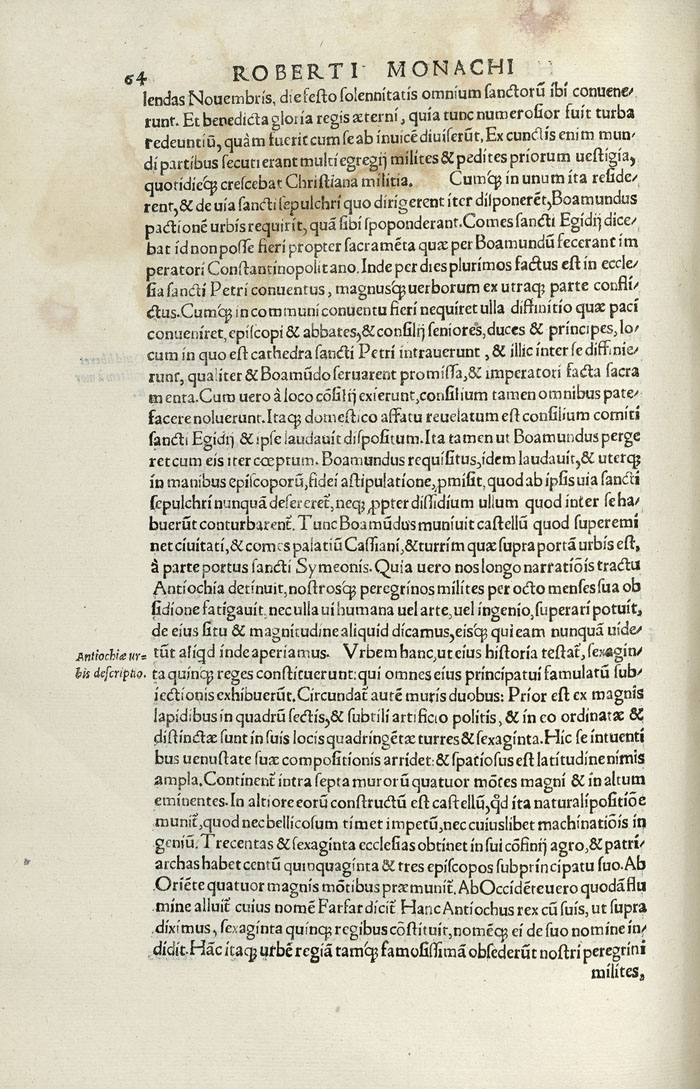 64 ROBERTI MONACHI
lendas Nouembris, die festo solennitatis omnium sanctorũ ibi conuene⸗
runt. Et benedicta gloria regis æterni, quia tunc numerosior fuit turba
redeuntiũ, quàm fuerit cum se ab inuicẽ diuiserũt. Ex cunctis enim mun⸗
di partibus secuti erant multi egregij milites & pedites priorum uestigia,
quotidieq́; crescebat Christiana militia. Cumq́; in unum ita reside⸗
rent, & de uia sancti sepulchri quo dirigerent iter disponerẽt, Boamundus
pactionẽ urbis requirit, quã sibi spoponderant. Comes sancti Egidij dice⸗
bat id non posse fieri propter sacramẽta quæ per Boamundũ fecerant im
peratori Constantinopolitano. Inde per dies plurimos factus est in eccle⸗
sia sancti Petri conuentus, magnusq́; uerborum ex utraq; parte confli⸗
ctus. Cumq́; in communi conuentu fieri nequiret ulla diffinitio quæ paci
conueniret, episcopi & abbates, & consilij seniores, duces & principes, lo⸗
cum in quo est cathedra sancti Petri intrauerunt, & illic inter se diffinie⸗
runt, qualiter & Boamũdo seruarent promissa, & imperatori facta sacra
menta. Cum uero à loco cõsilij exierunt, consilium tamen omnibus pate⸗
facere noluerunt. Itaq; domestico affatu reuelatum est consilium comiti
sancti Egidij & ipse laudauit dispositum. Ita tamen ut Boamundus perge
ret cum eis iter cœptum. Boamundus requisitus, idem laudauit, & uterq;
in manibus episcoporũ, fidei astipulatione, ꝓmisit, quod ab ipsis uia sancti
sepulchri nunquã desereret̃, neq; ꝓpter dissidium ullum quod inter se ha⸗
buerũt conturbarent̃. Tunc Boamũdus muniuit castellũ quod superemi
net ciuitati, & comes palatiũ Cassiani, & turrim quæ supra portã urbis est,
à parte portus sancti Symeonis. Quia uero nos longo narratiõis tractu
Antiochia detinuit, nostrosq́; peregrinos milites per octo menses sua ob
sidione fatigauit, nec ulla ui humana uel arte, uel ingenio, superari potuit,
de eius situ & magnitudine aliquid dicamus, eisq́; qui eam nunquã uide⸗
tũt aliqd inde aperiamus. Vrbem hanc, ut eius historia testat̃, sexagin⸗
Antiochiæ ur=
bis descriptio.
ta quinq; reges constituerunt: qui omnes eius principatui famulatũ sub⸗
iectionis exhibuerũt. Circundat̃ autẽ muris duobus: Prior est ex magnis
lapidibus in quadrũ sectis, & subtili artificio politis, & in eo ordinatæ &
distinctæ sunt in suis locis quadringẽtæ turres & sexaginta. Hic se intuenti
bus uenustate suæ compositionis arridet: & spatiosus est latitudine nimis
ampla. Continent̃ intra septa murorũ quatuor mõtes magni & in altum
eminentes. In altiore eorũ constructũ est castellũ, qd̃ ita naturali positiõe
munit̃, quod nec bellicosum timet impetũ, nec cuiuslibet machinatiõis in
geniũ. Trecentas & sexaginta ecclesias obtinet in sui cõfinij agro, & patri⸗
archas habet centũ quinquaginta & tres episcopos sub principatu suo. Ab
Oriẽte quatuor magnis mõtibus præmunit̃. Ab Occidẽte uero quodã flu
mine alluit̃ cuius nomẽ Farfar dicit̃ Hanc Antiochus rex cũ suis, ut supra
diximus, sexaginta quinq; regibus cõstituit, nomẽq; ei de suo nomine in⸗
didit. Hãc itaq; urbẽ regiã tamq́; famosissimã obsederũt nostri peregrini
milites,